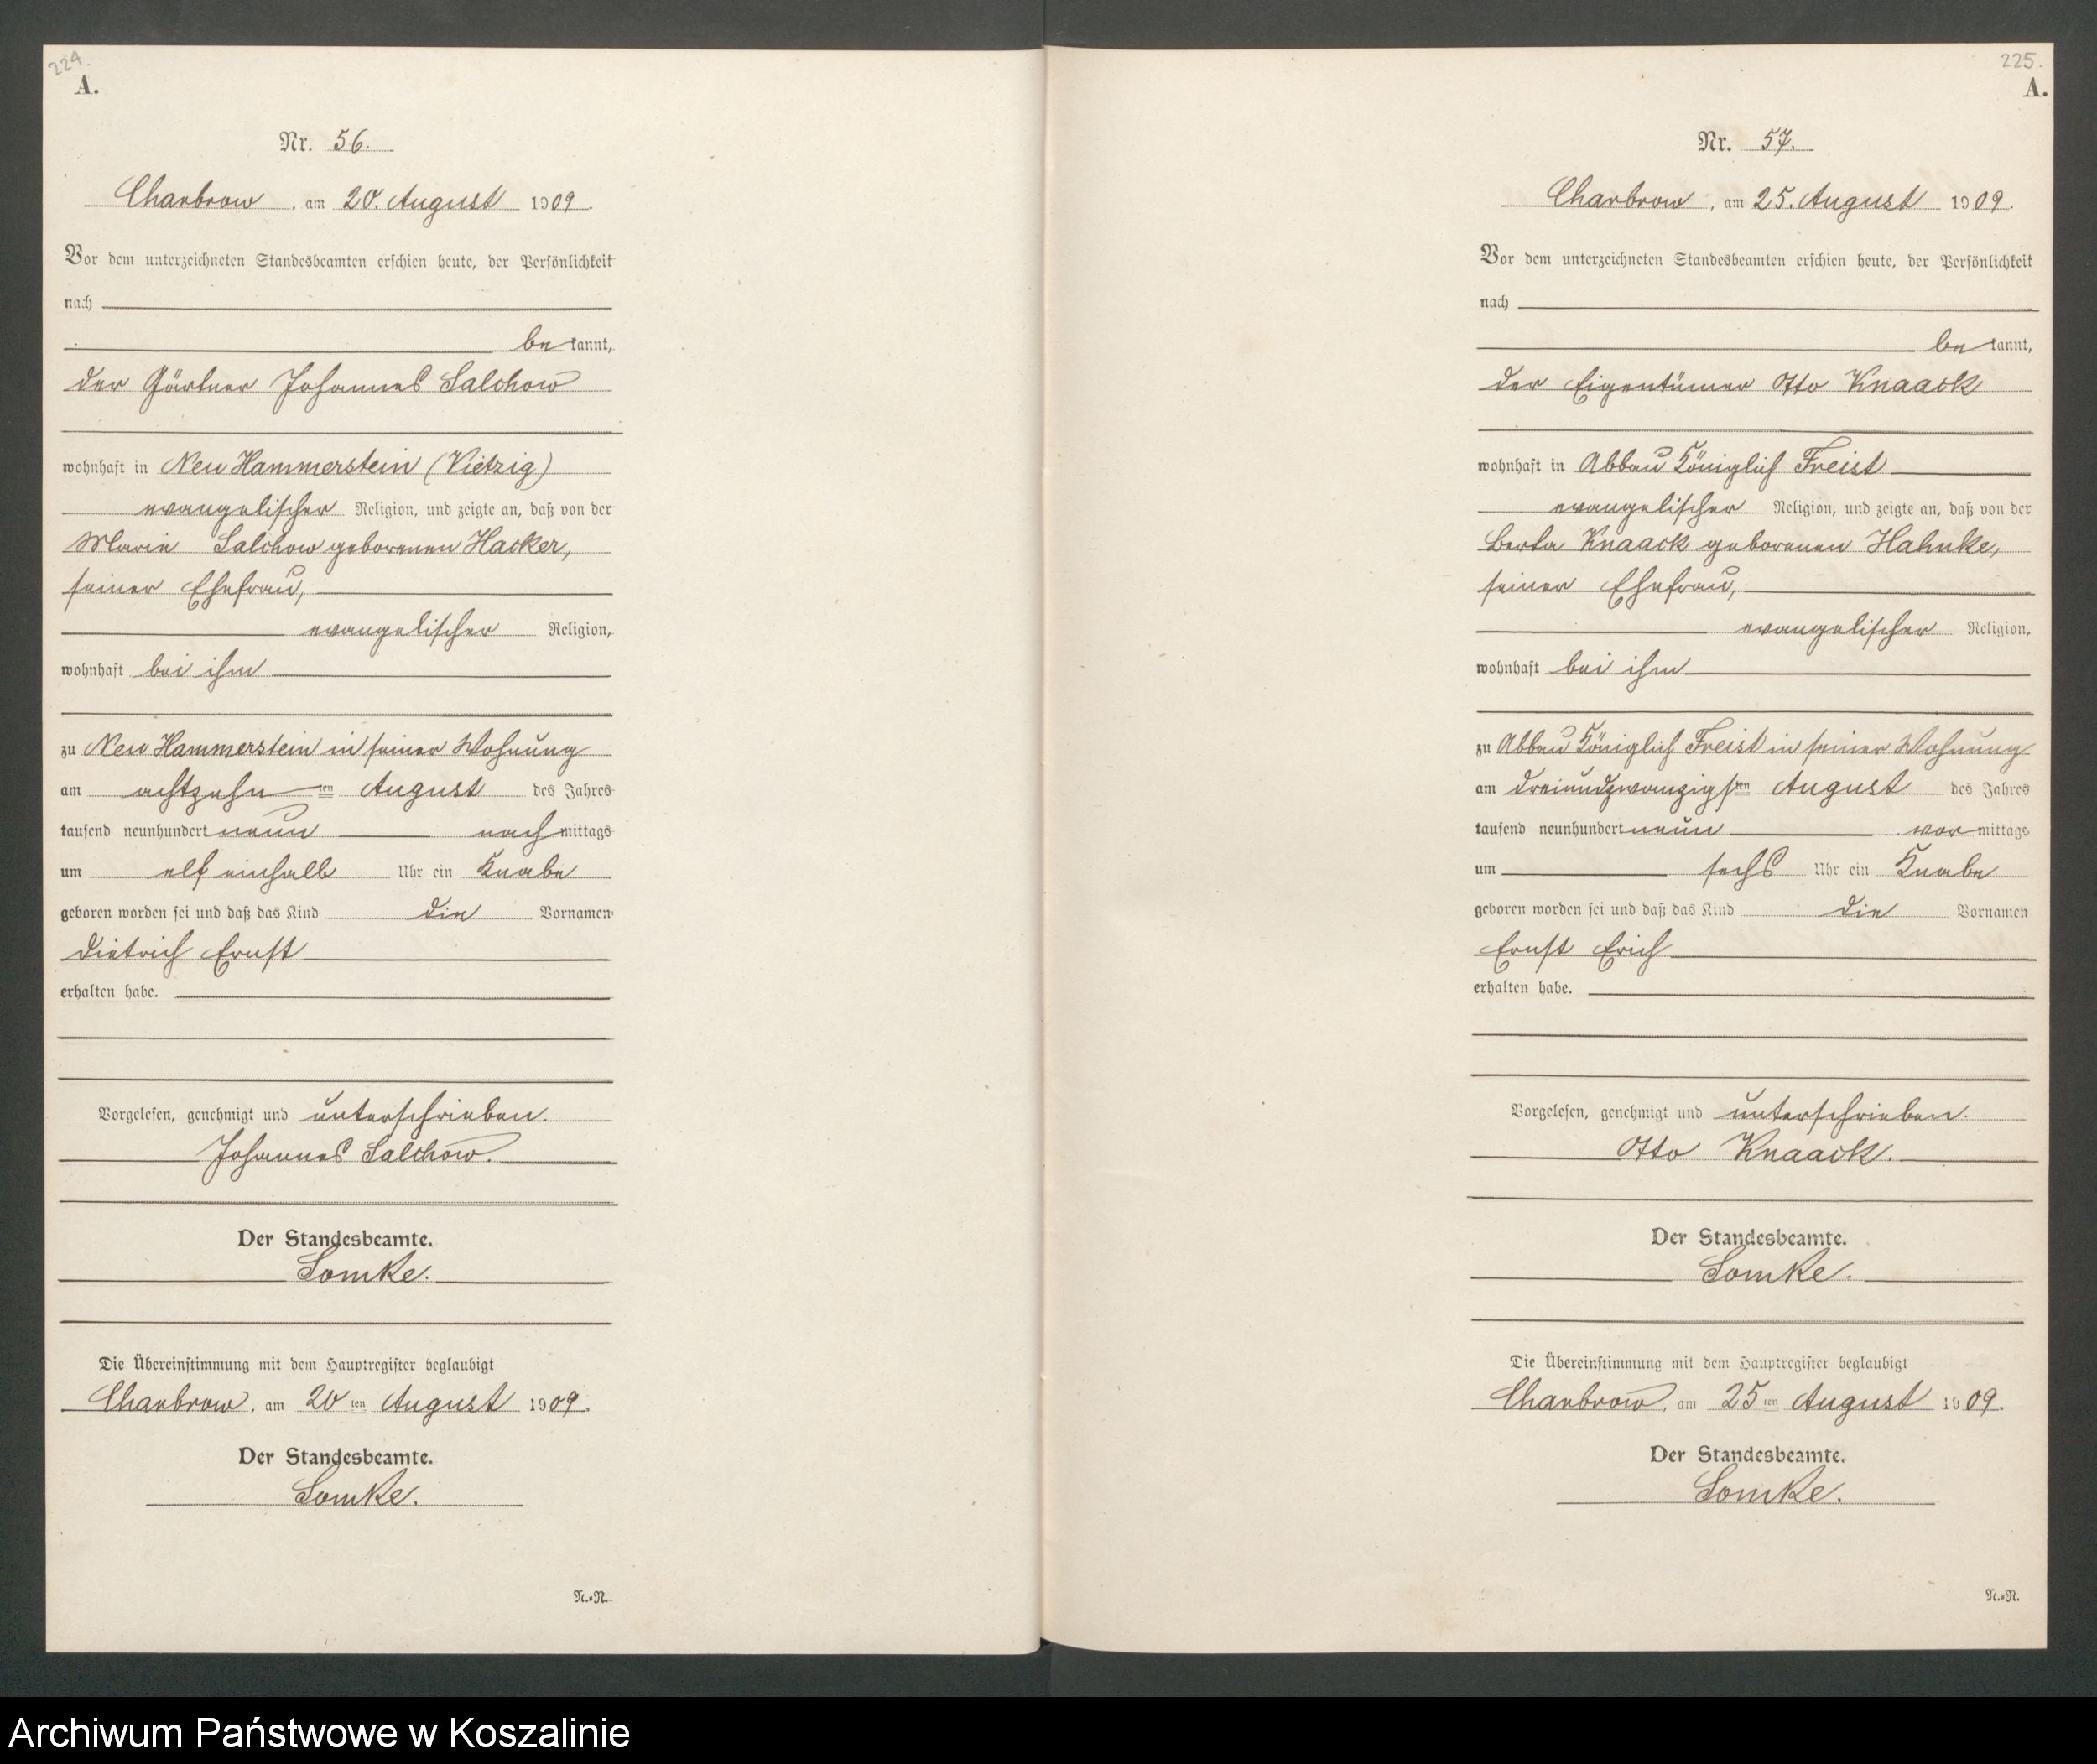 224.
A.
Nr. 56.
Charbrow, am 20. August 1909.
Vor dem unterzeichneten Standesbeamten erschien heute, der Persönlichkeit
nach
be kannt,
der Gärtner Johannes Salchow
wohnhaft in Neu Hammerstein (Vietzig)
evangelischer Religion, und zeigte an, daß von der
Marie Salchow geborenen Hacker,
seiner Ehefrau,
evangelischer Religion,
wohnhaft bei ihm
zu Neu Hammerstein in seiner Wohnung
am achtzehn ten August des Jahres
tausend neunhundert neun nach mittags
um elf einhalb Uhr ein Knabe
geboren worden sei und daß das Kind die Vornamen
Dietrich Ernst
erhalten habe.
Vorgelesen, genehmigt und unterschrieben.
Johannes Salchow.
Der Standesbeamte.
Lomke.
Die Übereinstimmung mit dem Hauptregister beglaubigt
Charbrow, am 20 ten August 1909.
Der Standesbeamte.
Lomke.
N.=N.
225.
A.
Nr. 57.
Charbrow, am 25. August 1909.
Vor dem unterzeichneten Standesbeamten erschien heute, der Persönlichkeit
nach
be kannt,
der Eigentümer Otto Knaack
wohnhaft in Abbau Königlich Freist
evangelischer Religion, und zeigte an, daß von der
Berta Knaack geborenen Hahnke,
seiner Ehefrau,
evangelischer Religion,
wohnhaft bei ihm
zu Abbau Königlich Freist in seiner Wohnung
am dreiundzwanzigs ten August des Jahres
tausend neunhundert neun vor mittags
um sechs Uhr ein Knabe
geboren worden sei und daß das Kind die Vornamen
Ernst Erich
erhalten habe.
Vorgelesen, genehmigt und unterschrieben.
Otto Knaack.
Der Standesbeamte.
Lomke.
Die Übereinstimmung mit dem Hauptregister beglaubigt
Charbrow, am 25 ten August 1909.
Der Standesbeamte.
Lomke.
N.=N.
Archiwum Państwowe w Koszalinie